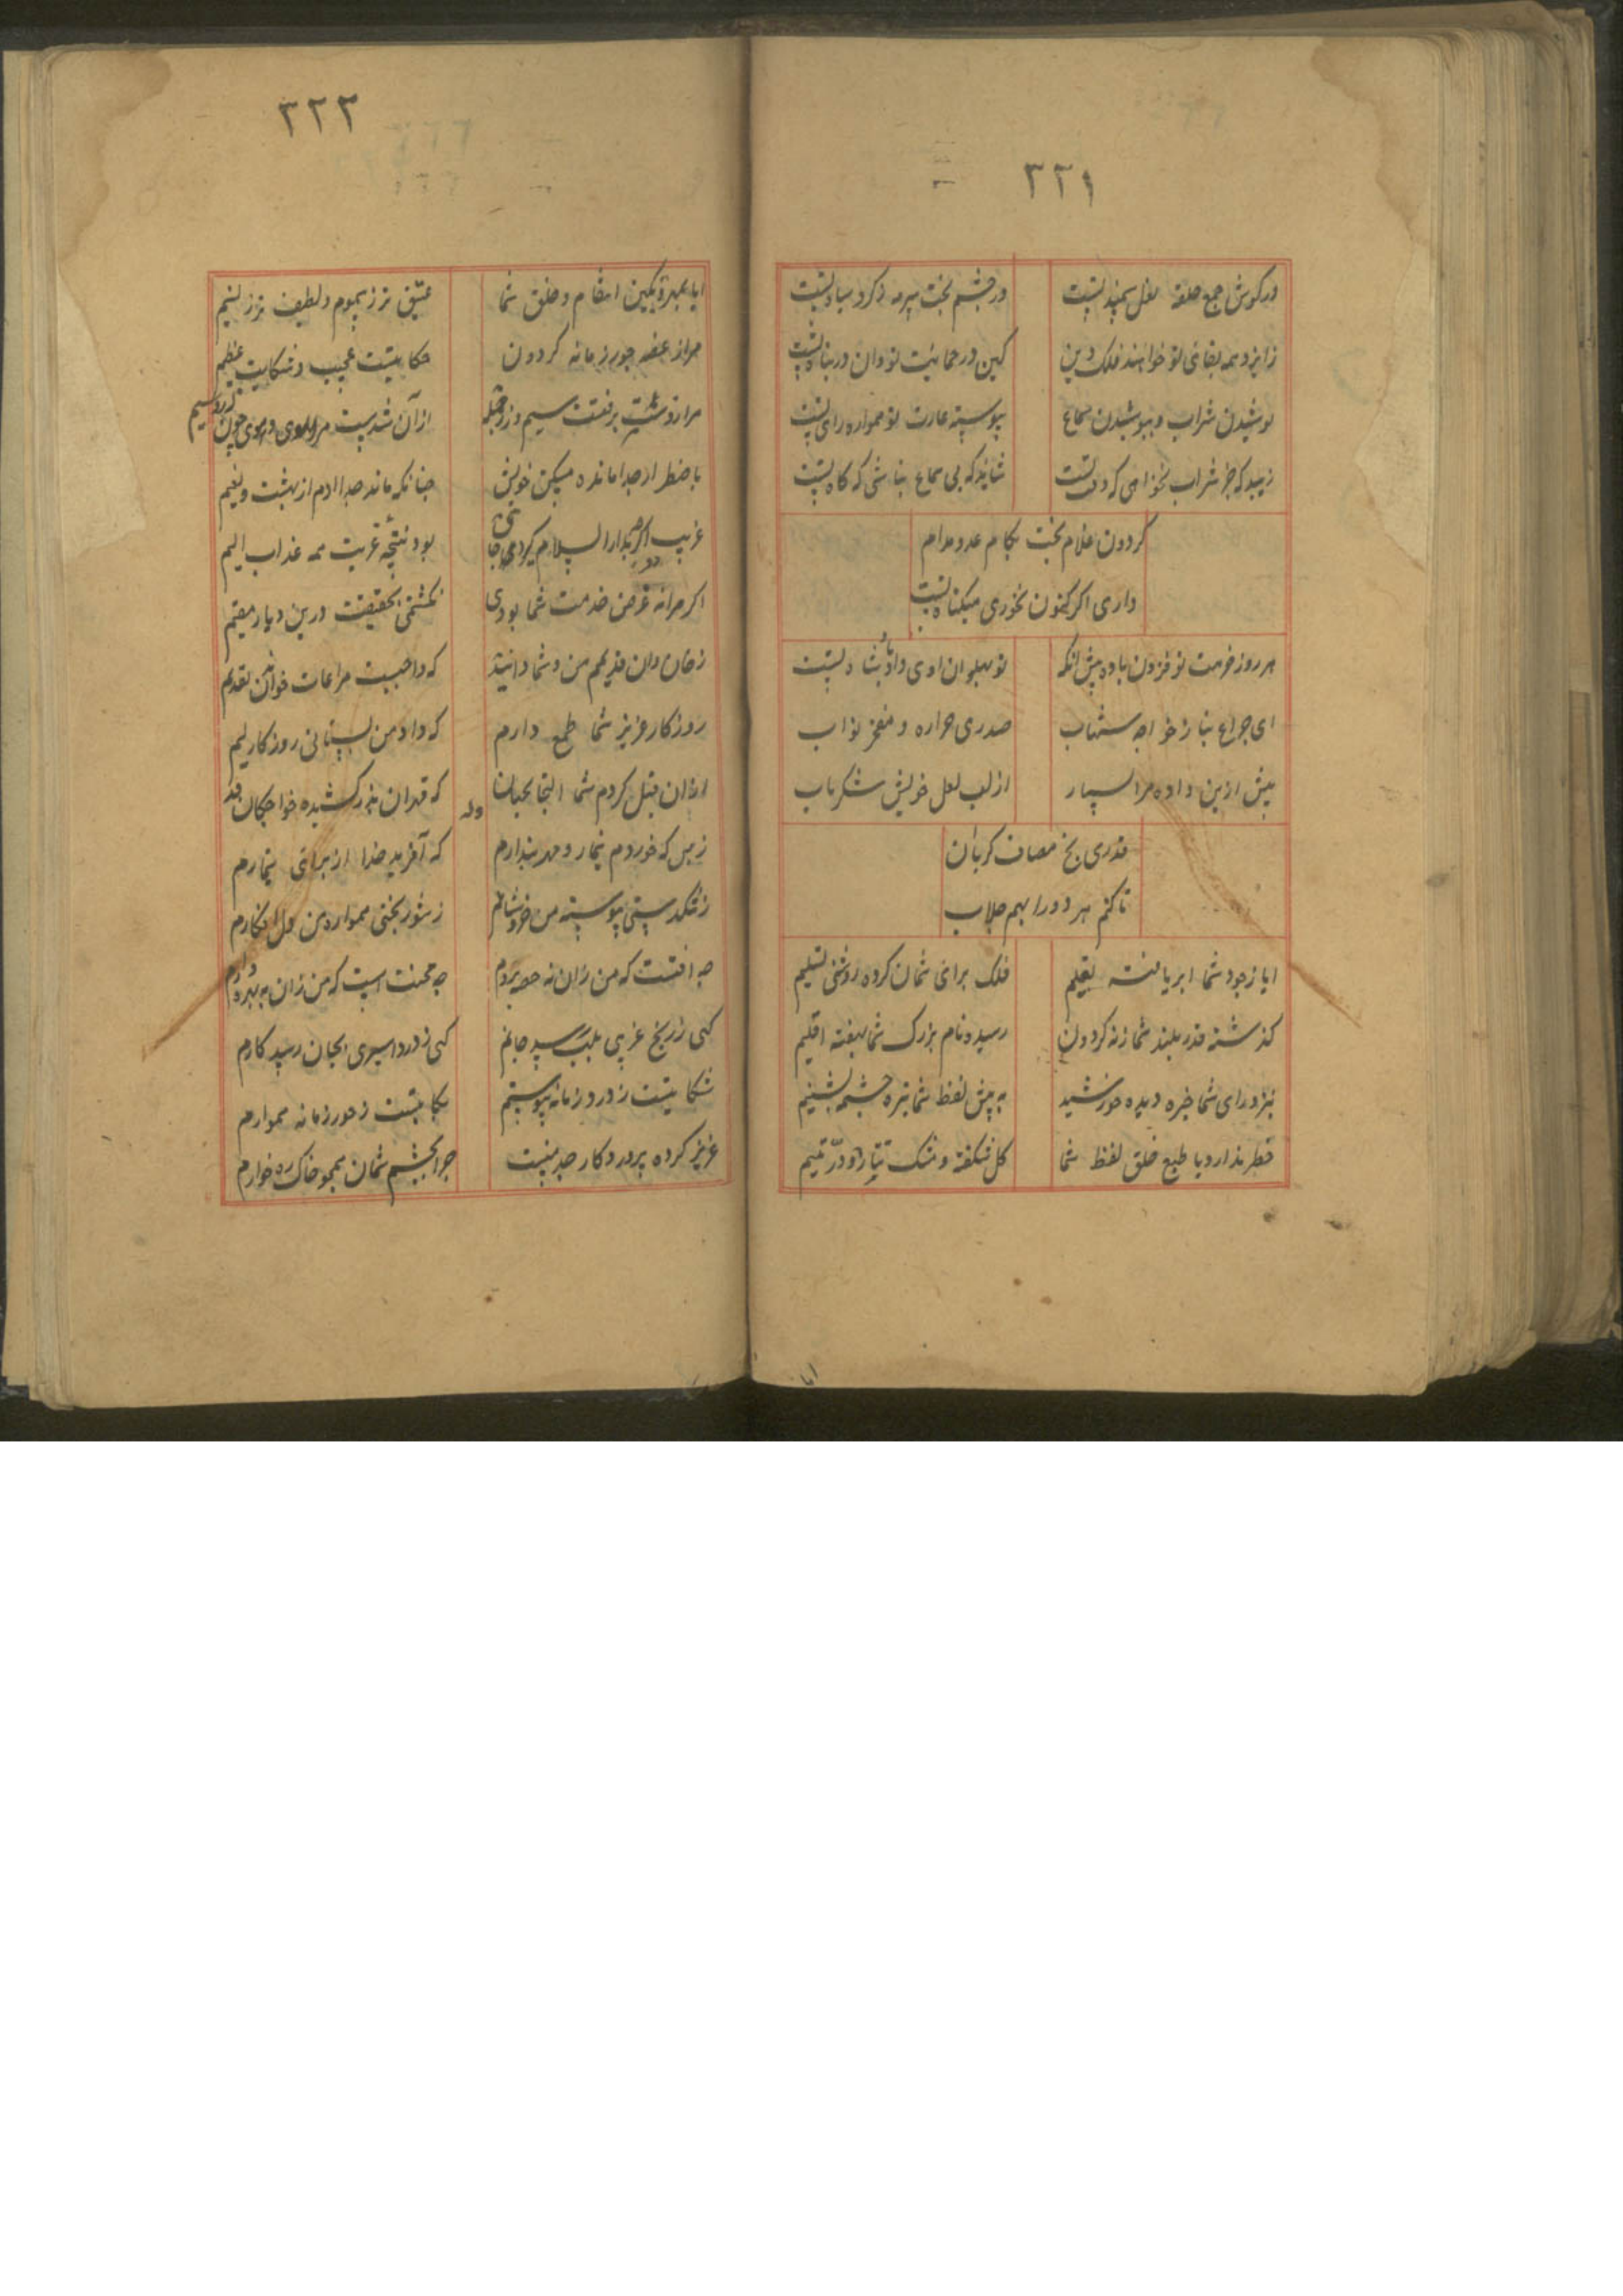 ٣٢١
در گوش جمع حلقه نعل سمند تست
در چشم بخت سرمه ز گرد سپاه تست
ز ایزد همه بقائی تو خواهند فلک و دین
کین در حمایت تو وان در پناه تست
نوشیدن شراب و نیوشیدن سماع
پیوسته عادت تو همواره رای تست
زیبد که جز شراب نخواهی که وقت تست
شاید که بی سماع نباشی که گاه تست
گردون غلام بخت بکام عدو مدام
داری اگر کنون نخوری می گناه تست
هر روز حرمت تو فزون باد و بیش آنکه
تو پهلوان اوی و او پادشاه تست
ای چراغ خواجه شهاب
صدری احرار و مفخر نواب
پیش ازین داده مرا بسیار
از لب لعل خویش شکر ناب
قدری یخ مصاف کن با آن
تا کنم هر دو را بهم جلاب
ایا ز جود شما ابر یافته تعلیم
فلک برای شمان کرده روشنی تسلیم
گذشته قدر بلند شما ز نه گردون
رسیده نام بزرگ شما بهفت اقلیم
بنزد رای شما خیره دیده خورشید
به پیش لفظ شما تیره چشمه تسنیم
خطر ندارد با طبع خلق لفظ شما
گل شکفته و مشک تتار و در یتیم
ایا
٣٢٢
ایا بمهر و بکین انتقام و خلق شما
عتیق تر ز سموم و لطیف تر ز نسیم
مرا ز غصه جور زمانه گردون
حکایتیست عجیب و شکایت عظیم
مرا ز دست برفتست سیم و زر جمله
از آن شدست مرا روی و موی چون زر و سیم
باضطرار جدا مانده مسکن خویش
چنانکه ماند جدا آدم از بهشت و نعیم
غریب اگر چه بدار السلام گیرد جای
بود نتیجه غربت همه عذاب الیم
اگر مرا نه غرض خدمت شما بودی
نگشتمی بحقیقت درین دیار مقیم
ز خان و مان قدیمم من و شما دانید
که واجبست مراعات خواندن تقدیم
روزگار عزیز شما طمع دارم
که داد من بستانی روزگار لیم
از آن قبل کردم شما التجا بجان
که قهرمان هنر کشیده خواجگان قدیم
وله
ز بس که خوردم تیمار و مهر پندارم
که آفرید خدا از برای تیمارم
ز تنگدستی پیوسته من خروشانم
ز شوربختی همواره من دل افگارم
چه آفتست که من زان نه حصه بردم
چه محنت است که من زان نه بهره دارم
گهی ز رنج غریبی بلب رسد جانم
گهی ز درد اسیری بجان رسد کارم
شکایتیست ز درد زمانه پیوستم
حکایتیست ز جور زمانه هموارم
عزیز کرده پروردگار
چرا بچشم شمان همچو خاک ره خوارم